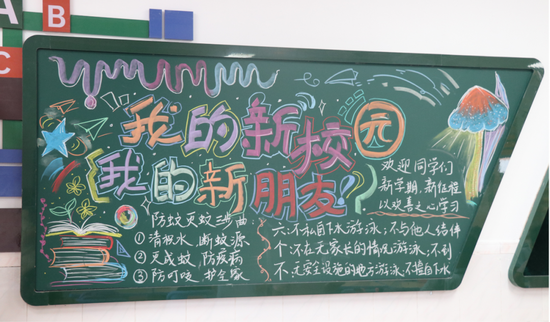 A
B
C
我的新校园
我的新朋友!
欢迎同学们
新学期，新征程
以欢喜之心学习
防蚊灭蚊三步曲
①清积水，断蚊源
②灭成蚊，防疾病
③防叮咬，护全家
六：不私自下水游泳；不与他人结伴
个：不在无家长的情况游泳；不到
不：无安全设施的地方游泳；不擅自下水